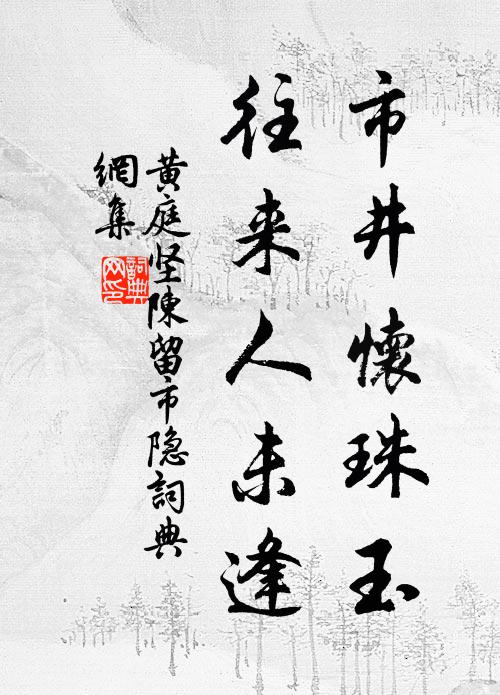 市井懷珠玉
往来人未逢
黄庭坚陳留市隐詞典
網集
詞典网印